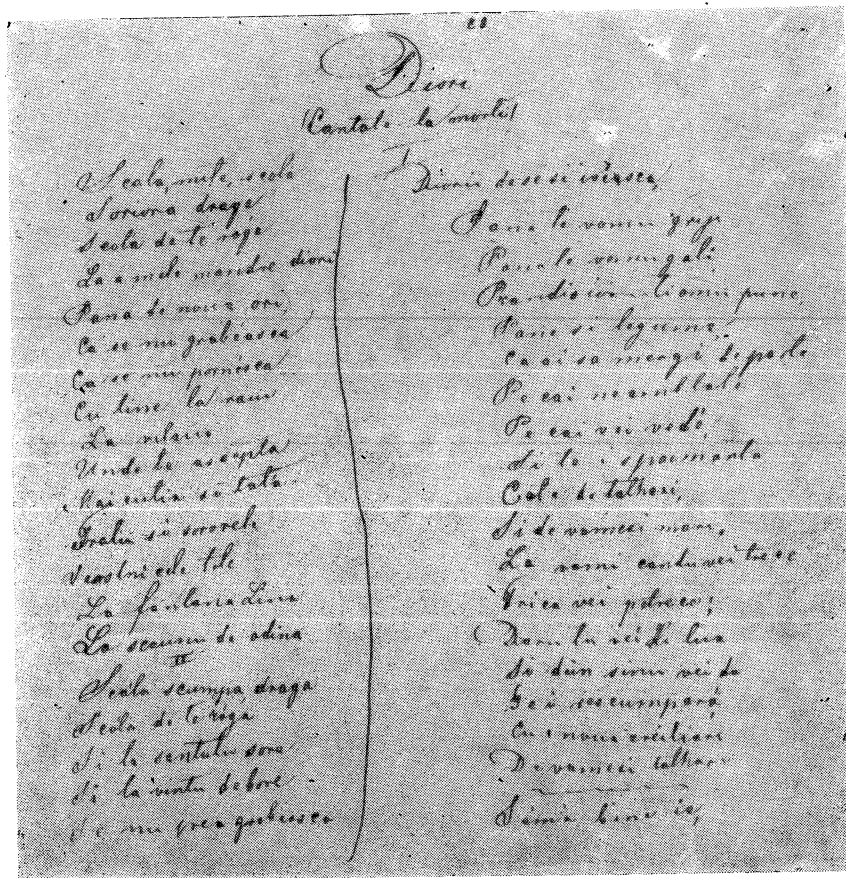 Diori
(Cantate la morti)
I
Scola, mile, scola
Soriora draga
Scola de te roje
La a mele mandre diori
Pana de noua ori,
Ca se nu grabeasca
Ca se nu pornesca
Cu tine la raiu
La
Unde te ascepta
Mai cutia si tata
Fratii si sororele
cele tele
La fantana Lina
La scaunu de odina
II
Scola scumpa draga
Scola de te roga
Si la santulu sore
Si la ventu de bore
Se nu prea grabeasca
Diorii de se si ivesca,
Pana te vomu griji
Pana te vomu gati
pune,
Pane si legume,
Ca ai sa mergi departe
Pe cai neamblate
Pe cai vei vedé,
Si te i spaimanta
Cete de talhari,
Si de vamesi mari,
La vami candu vei trece
Frica vei petrece;
Daru tu vei
Si din sinu vei da
rescumpara
Cu noua creitiari
De vamesi talhari
Séma bine ia,